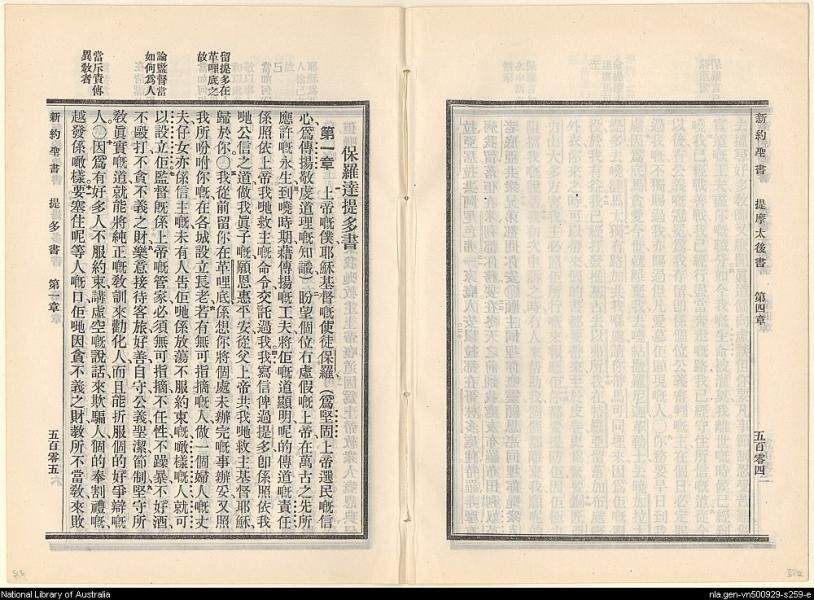 新約聖書 提摩太後書 第四章 五百零四
保羅達提多書
第一章 上帝嘅僕耶穌基督嘅使徒保羅(爲堅固上帝選民嘅信
心爲傳揚敬虔道理嘅知識)盼望個位冇虛假嘅上帝在萬古之先所
應許嘅永生到嘵時期藉傳揚嘅工夫將佢嘅道顯明呢的傳道嘅責任
係照依上帝我哋救主嘅命令交託過我我寫信俾過提多卽係照依我
哋公信之道做我眞子嘅願恩惠平安從父上帝共我哋救主基督耶穌
歸於你〇我從前留你在革哩底係想你將個處未辦完嘅事辦妥又照
我所吩咐你嘅在各城設立長老若有無可指摘嘅人做一個婦人嘅丈
夫仔女亦係信主嘅未有人告佢哋係放蕩不服約束嘅噉樣嘅人就可
以設立佢監督旣係上帝嘅管家必須無可指摘不任性不躁暴不好酒
不毆打不貪不義之財樂意接待客旅好善自守公義聖潔節制堅守所
敎眞實嘅道就能將純正嘅敎訓來勸化人而且能折服個的好爭辯嘅
人〇因爲有好多人不服約束講虛空嘅說話來欺騙人個的奉割禮嘅
越發係噉樣要塞住呢等人嘅口佢哋因貪不義之財敎所不當敎來敗
留提多在
革哩底之
故
論監督當
如何爲人
當斥責傳
異敎者
新約聖書 提多書 第一章 五百零五
National Library of Australia
nla.gen-vn500929-s259-e